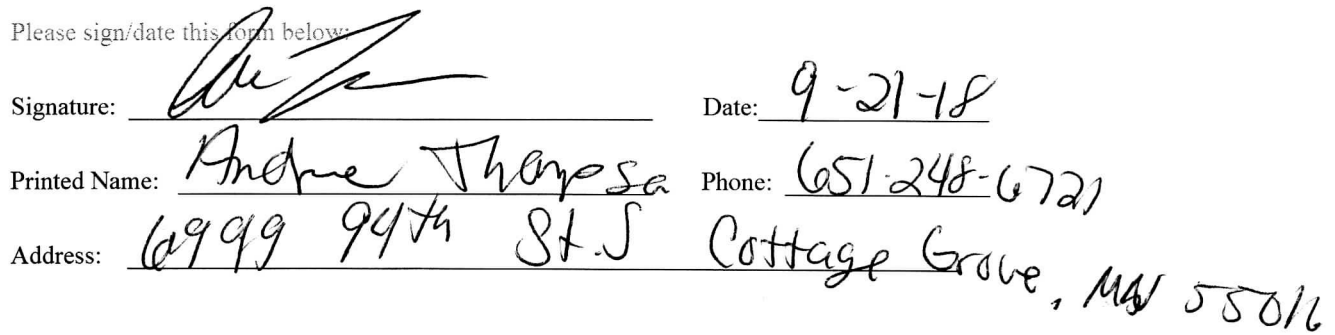 Please sign/date this form below:
Signature: Date: 9-21-18
Printed Name: Andre Phone: 651-248-6721
Address: 6999 94th St. S Cottage Grove, MN 55016